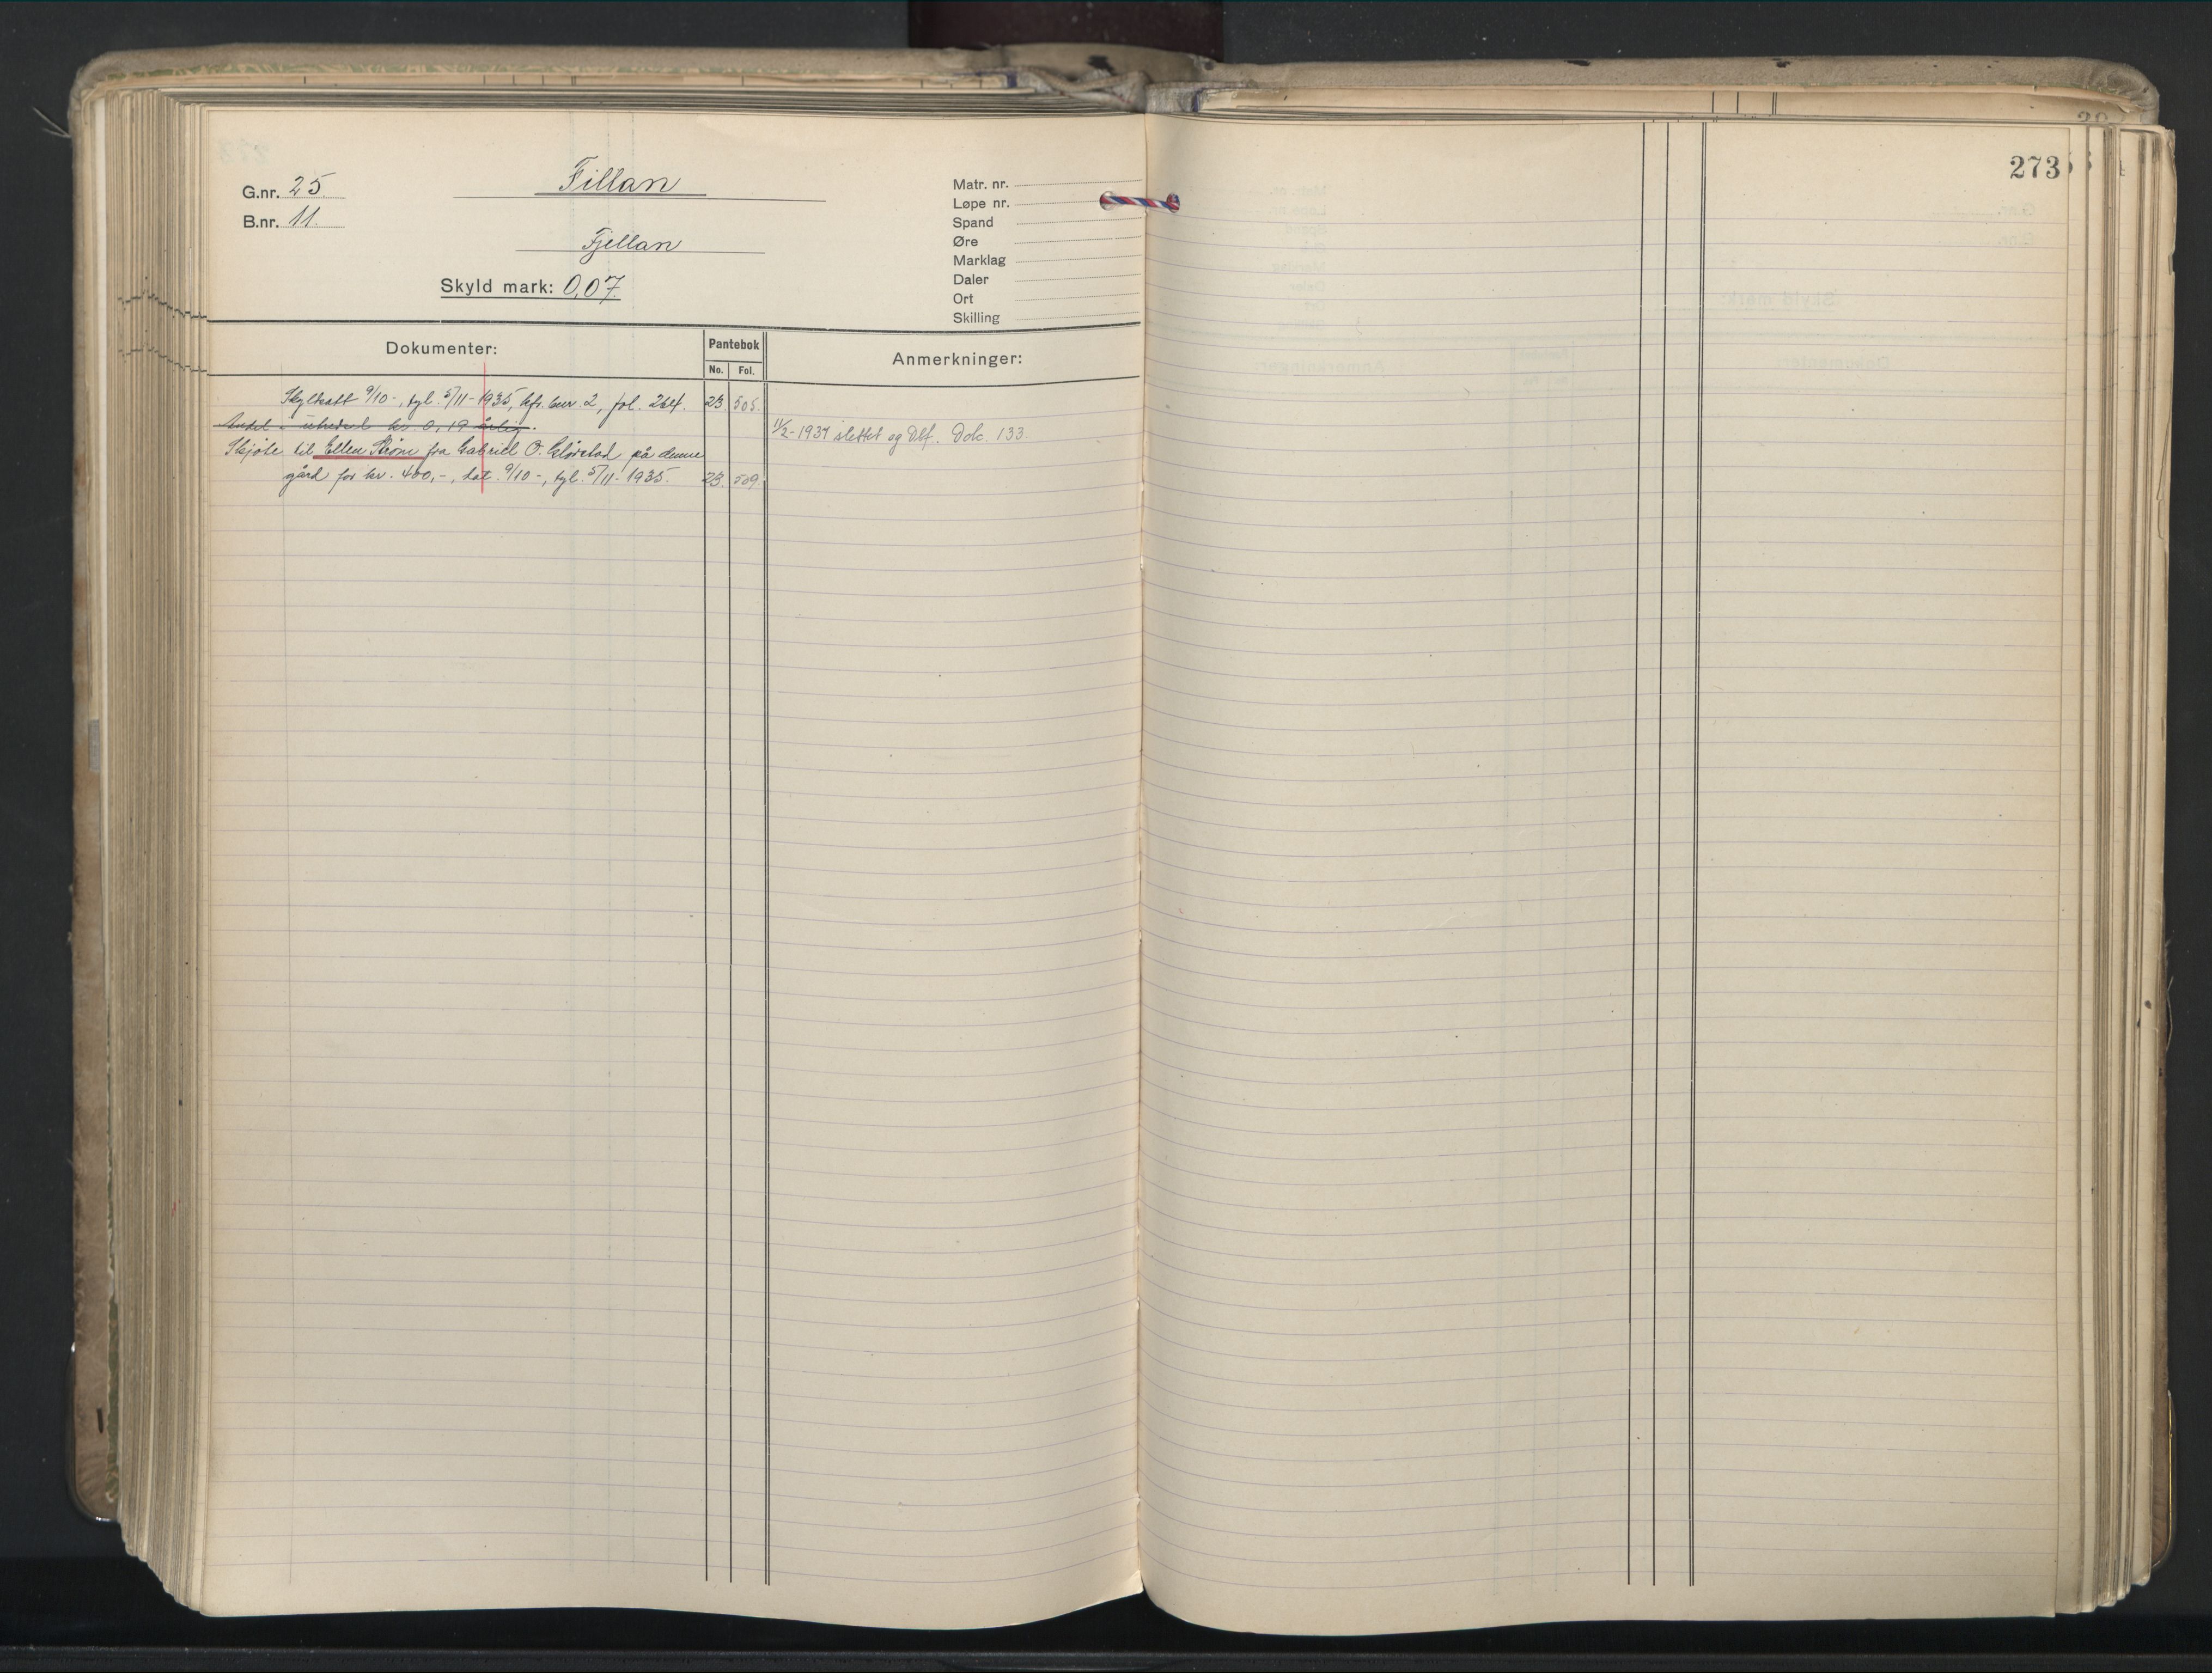 273
G.nr. 25
B.nr. 11.
Fillan
Fjellan
Skyld mark: 0,07
Matr. nr.
Løpe nr.
Spand
Øre
Marklag
Daler
Ort
Skilling
Dokumenter:
Pantebok
No. Fol.
Anmerkninger:
9/10-, tgl. 5/11-1935, kfr. bnr. 2, fol. 264. 23. 505.
Andel i utredsel kr 0,19 årlig.
11/2-1937 slettet og Dlf. Dok. 133.
Skjøte til Ellen Strøm fra Gabriel O. på denne
gård for kr. 400,-, dat. 9/10-, tgl. 5/11-1935. 23. 509.